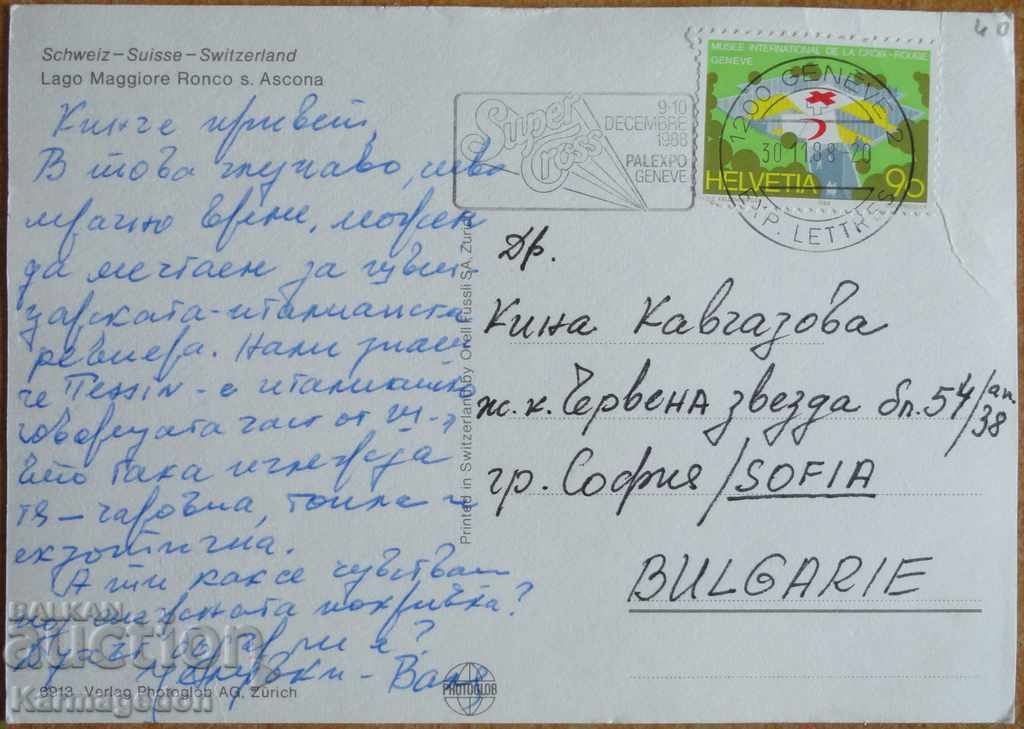 Schweiz – Suisse – Switzerland
Lago Maggiore Ronco s. Ascona
Кинче привет,
В това глухаво, сиво
мрачно време, можем
да мечтаем за
ривиера. Нали знаеш
че Tessin - е
говорещата част от
Ето така изглежда
тя – чаровна, топла и
екзотична.
А ти как се чувстваш
покривка?
Целувки - Ваня
8913 Verlag Photoglob AG, Zürich
PHOTOGLOB
Printed in Switzerland by Orell Füssli SA, Zürich
Super Cross
9-10
DECEMBRE
1988
PALEXPO
GENEVE
MUSEE INTERNATIONAL DE LA CROIX-ROUGE
GENEVE
HELVETIA 90
1200 GENEVE 2
30.11.88-20
EXP. LETTRES
40
Др.
Кина Кавгазова
ж.к. Червена звезда бл. 54/ап. 38
гр. София / SOFIA
BULGARIE
BALKAN
auction
Karmagedon